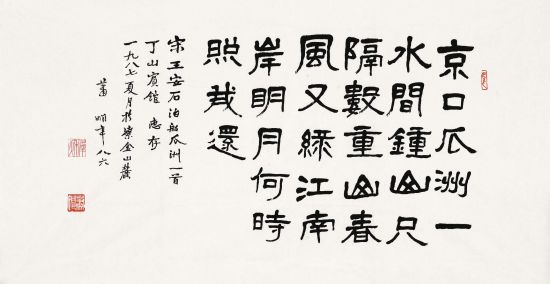 京口瓜洲一
水間鍾山只
隔數重山春
風又綠江南
岸明月何時
照我還
宋王安石泊船瓜洲一首
丁山賓館惠存
一九八七夏月於紫金山麓
蕭嫻年八六